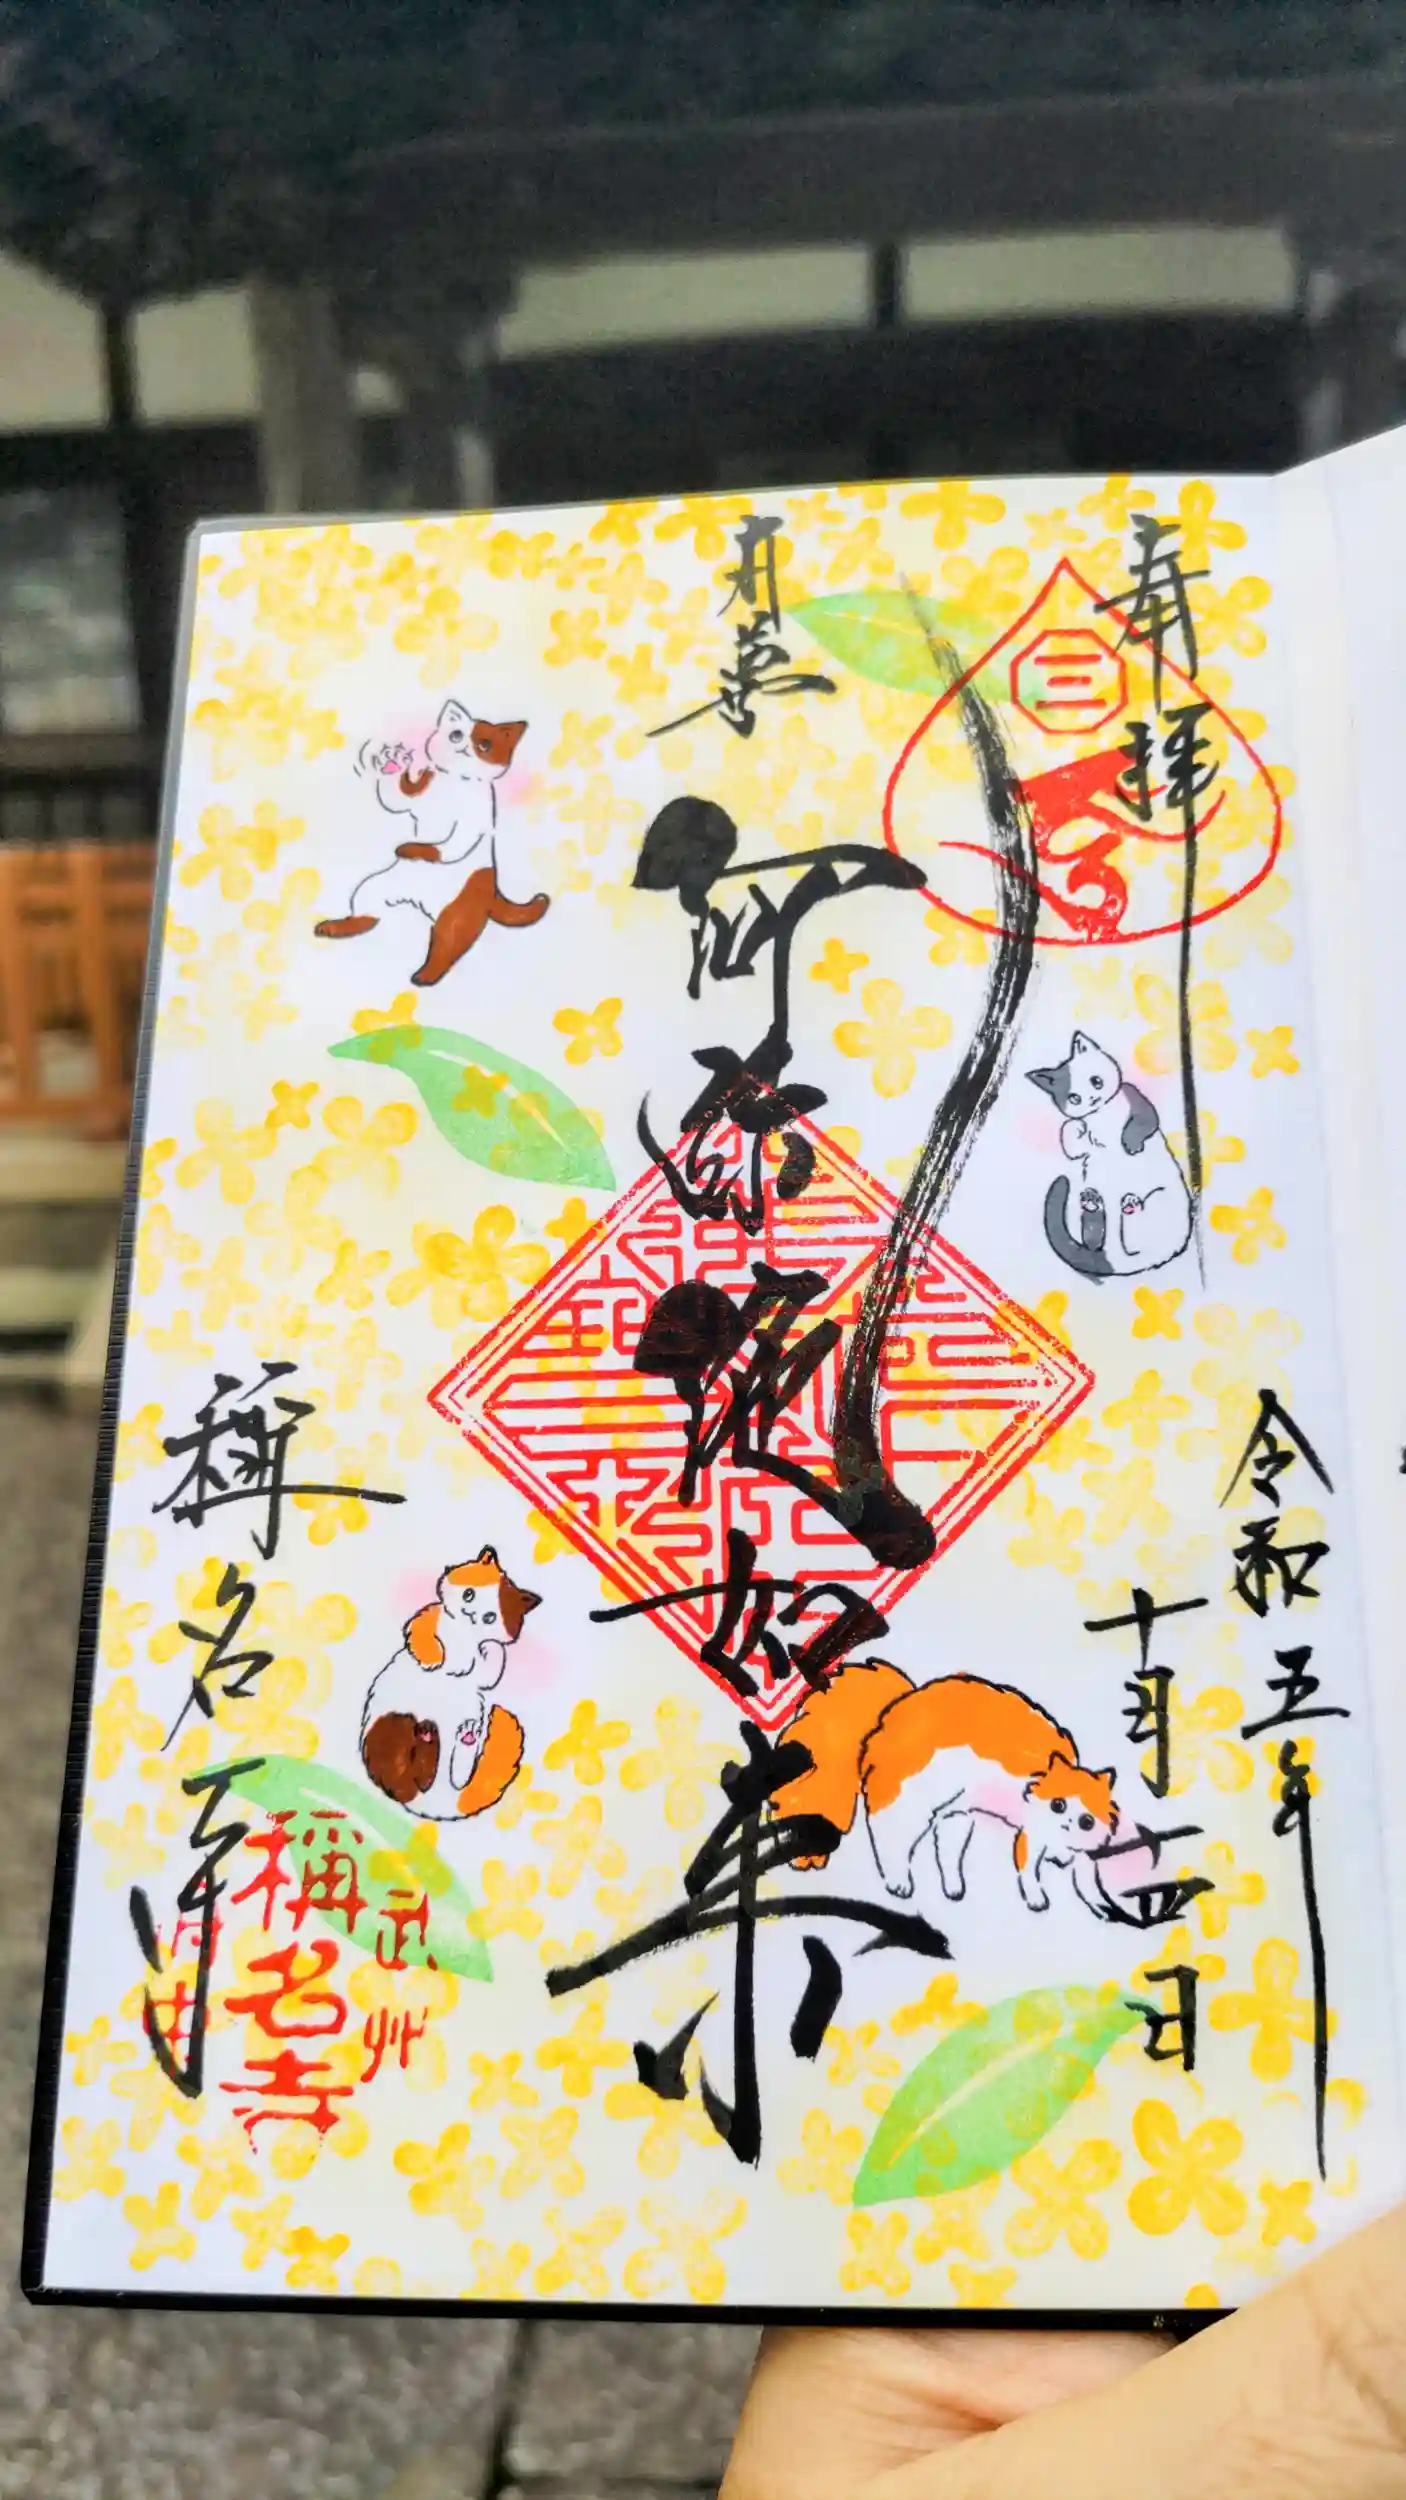 奉拝
三
令和五年
十月廿四日
月夢
阿弥陀如来
稱名寺
武州
稱名寺